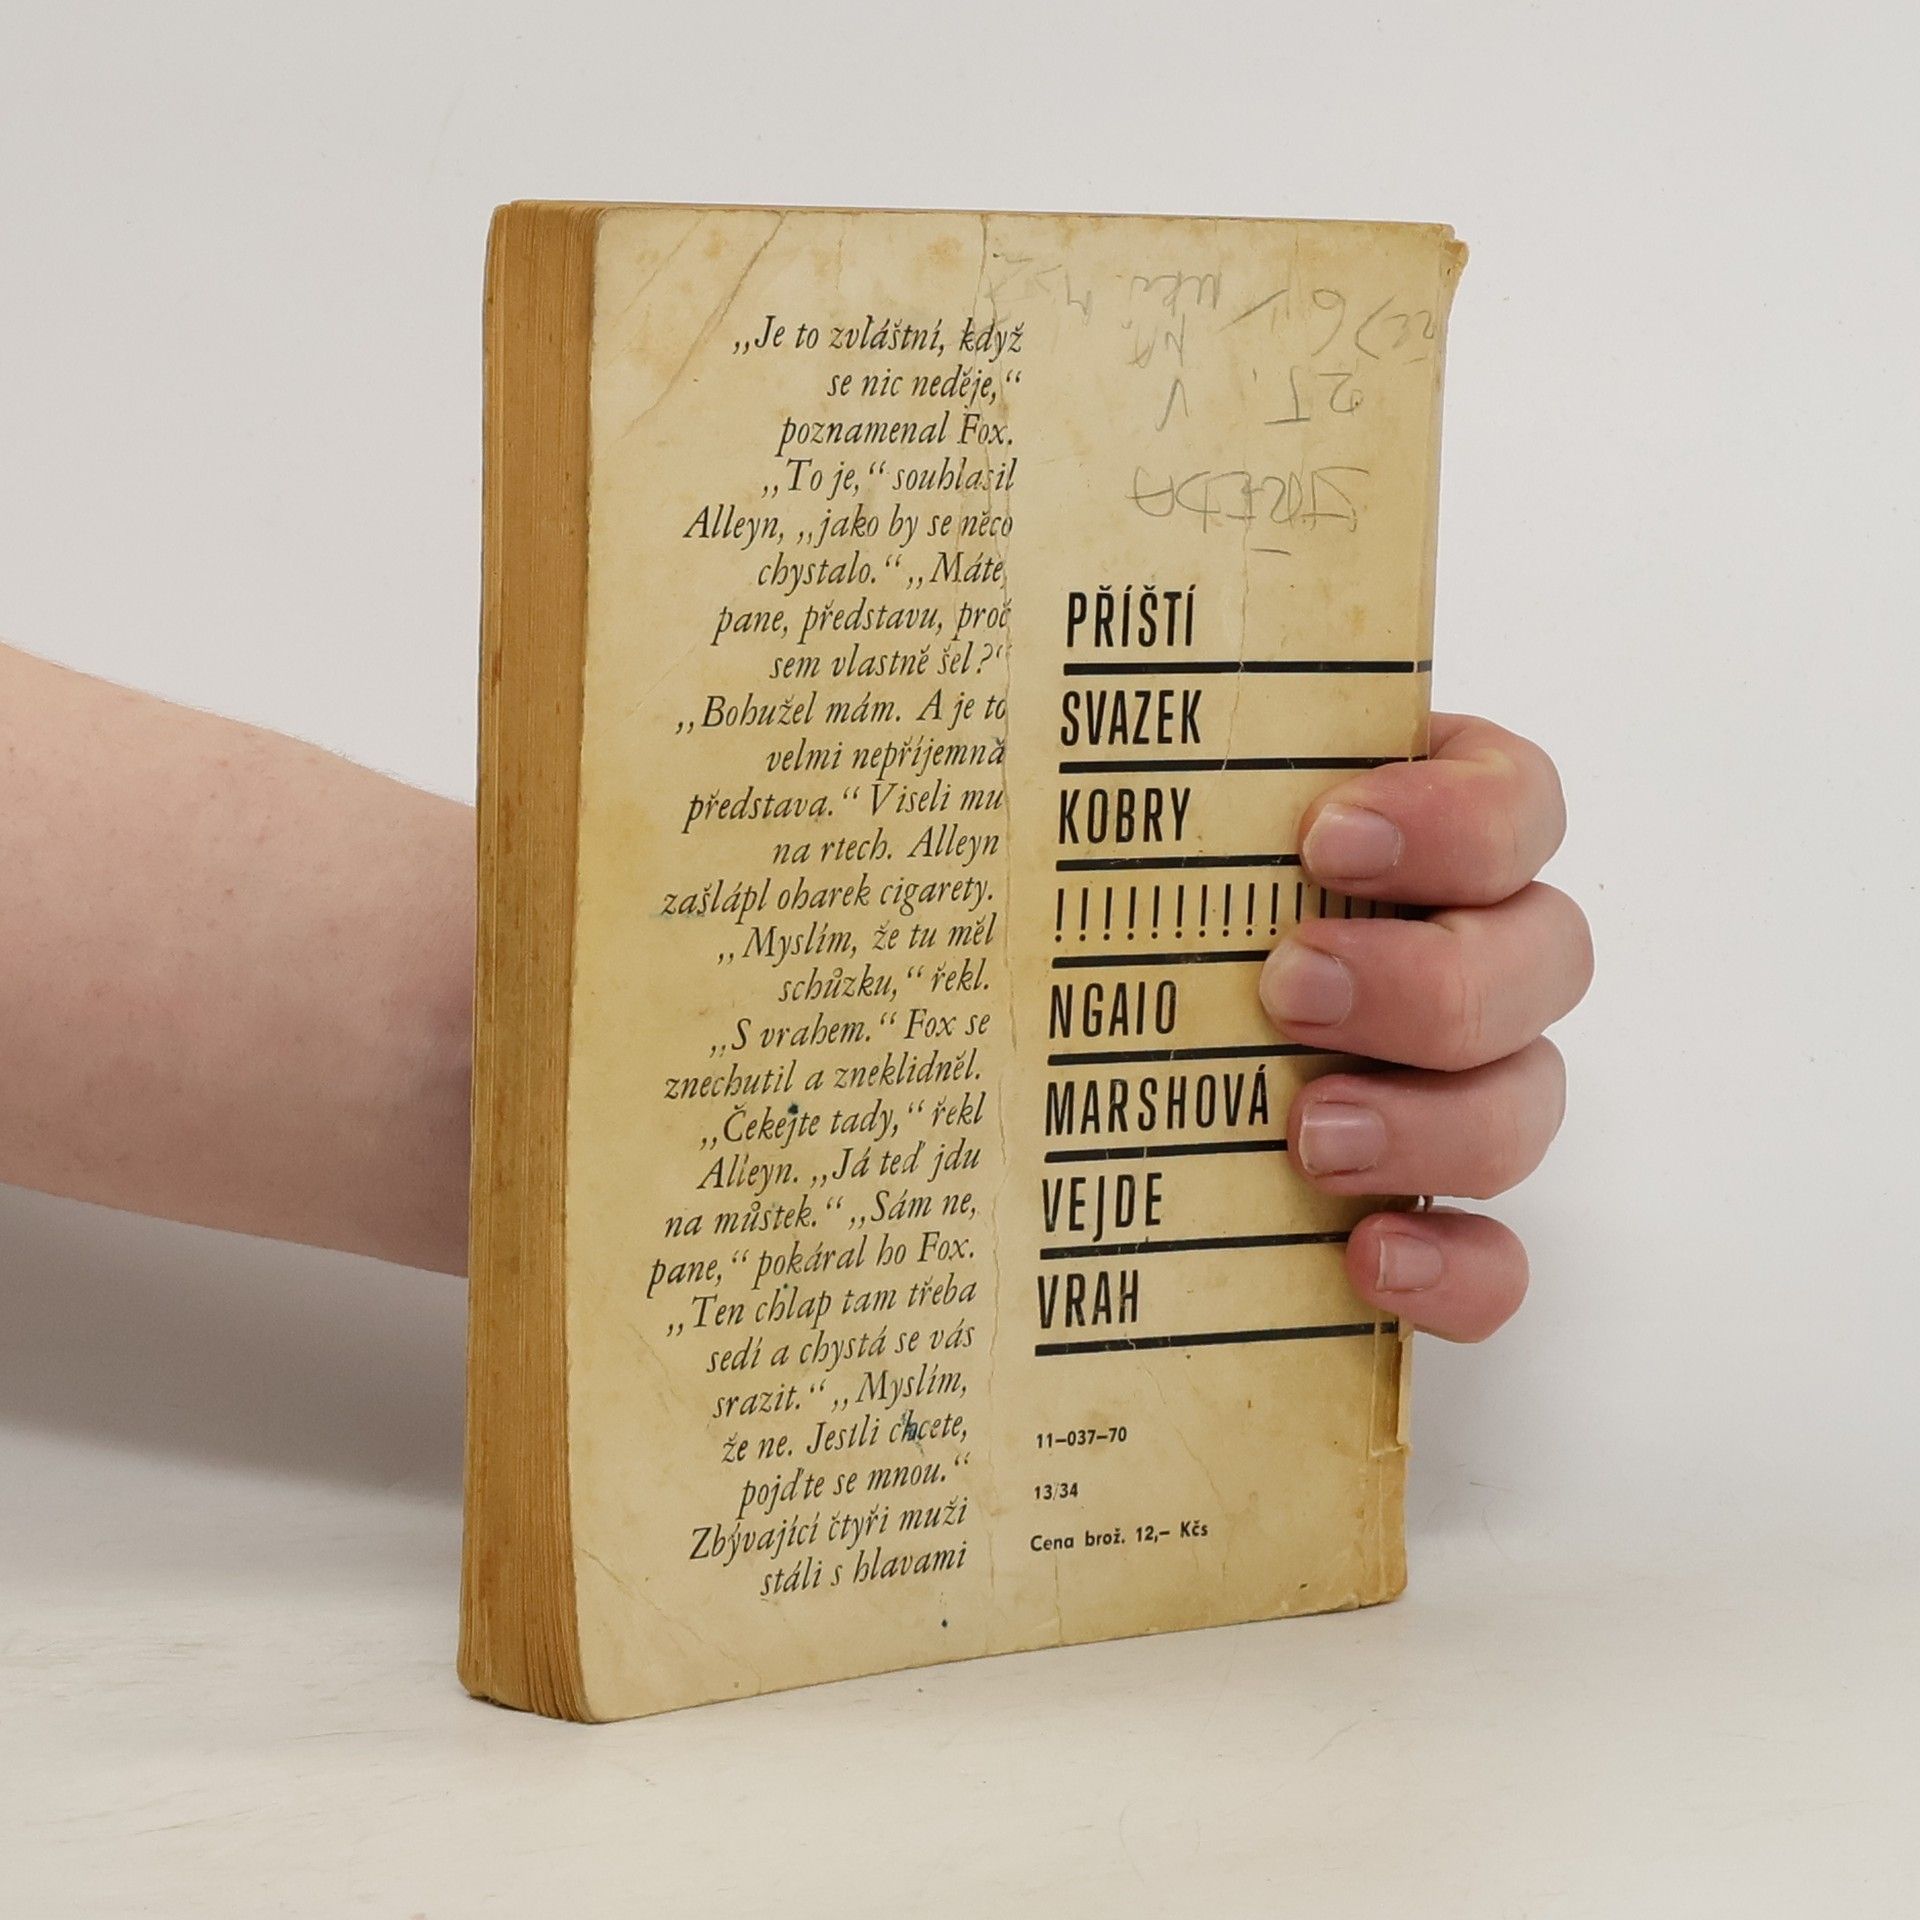 „Je to zvláštní, když
se nic neděje,“
poznamenal Fox.
„To je,“ souhlasil
Alleyn, „jako by se něco
chystalo.“ „Máte,
pane, představu, proč
sem vlastně šel?“
„Bohužel mám. A je to
velmi nepříjemná
představa.“ Viseli mu
na rtech. Alleyn
zašlápl oharek cigarety.
„Myslím, že tu měl
schůzku,“ řekl.
„S vrahem.“ Fox se
znechutil a zneklidněl.
„Čekejte tady,“ řekl
Alleyn. „Já teď jdu
na můstek.“ „Sám ne,
pane,“ pokáral ho Fox.
„Ten chlap tam třeba
sedí a chystá se vás
srazit.“ „Myslím,
že ne. Jestli chcete,
pojďte se mnou.“
Zbývající čtyři muži
stáli s hlavami
STŘEDA
PŘÍŠTÍ
SVAZEK
KOBRY
!!!!!!!!!!!!!!
NGAIO
MARSHOVÁ
VEJDE
VRAH
11–037–70
13/34
Cena brož. 12,– Kčs